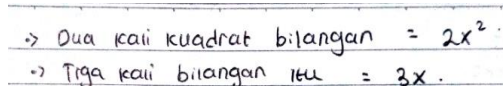 •> Dua kali kuadrat bilangan = 2x².
•> Tiga kali bilangan itu = 3x.